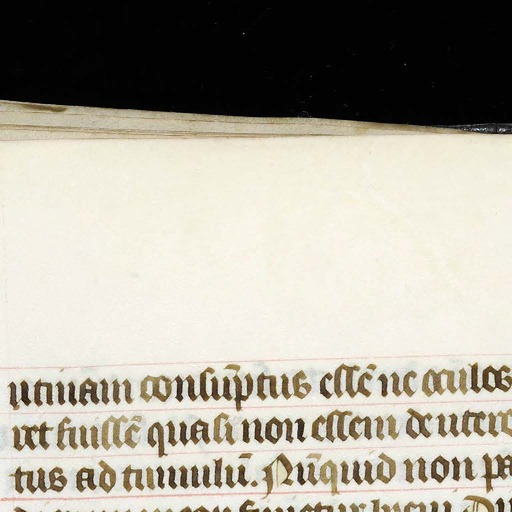 utinam consūptus essē ne oculos
ret fuissē quasi non essem de utero
tus ad tumulū. Nūquid non pa